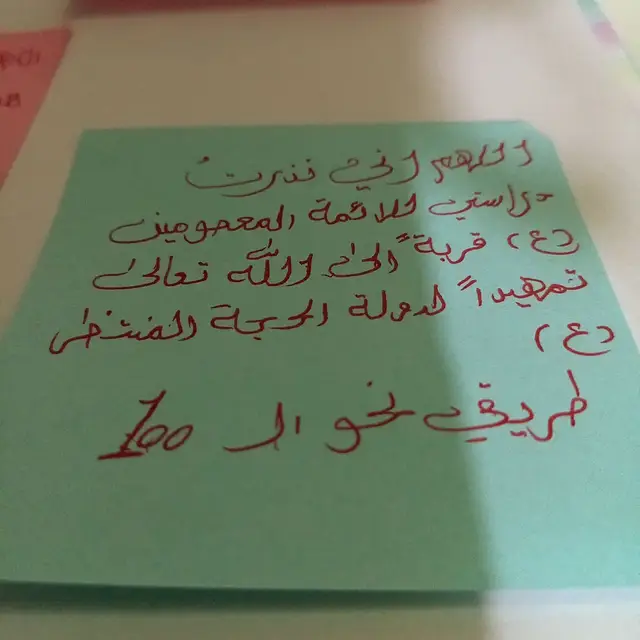 اللهم اني نذرتُ
دراستي للائمة المعصومين
(ع) قربةً الى الله تعالى
تمهيداً لدولة الحجة المنتظر
(ع)
طريقي نحو الـ 100